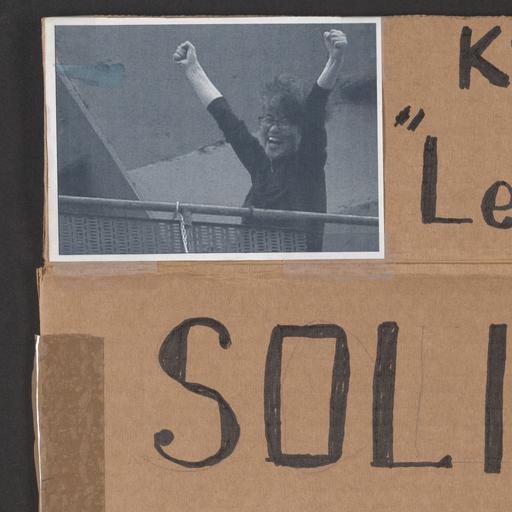 K
"Le
SOLI